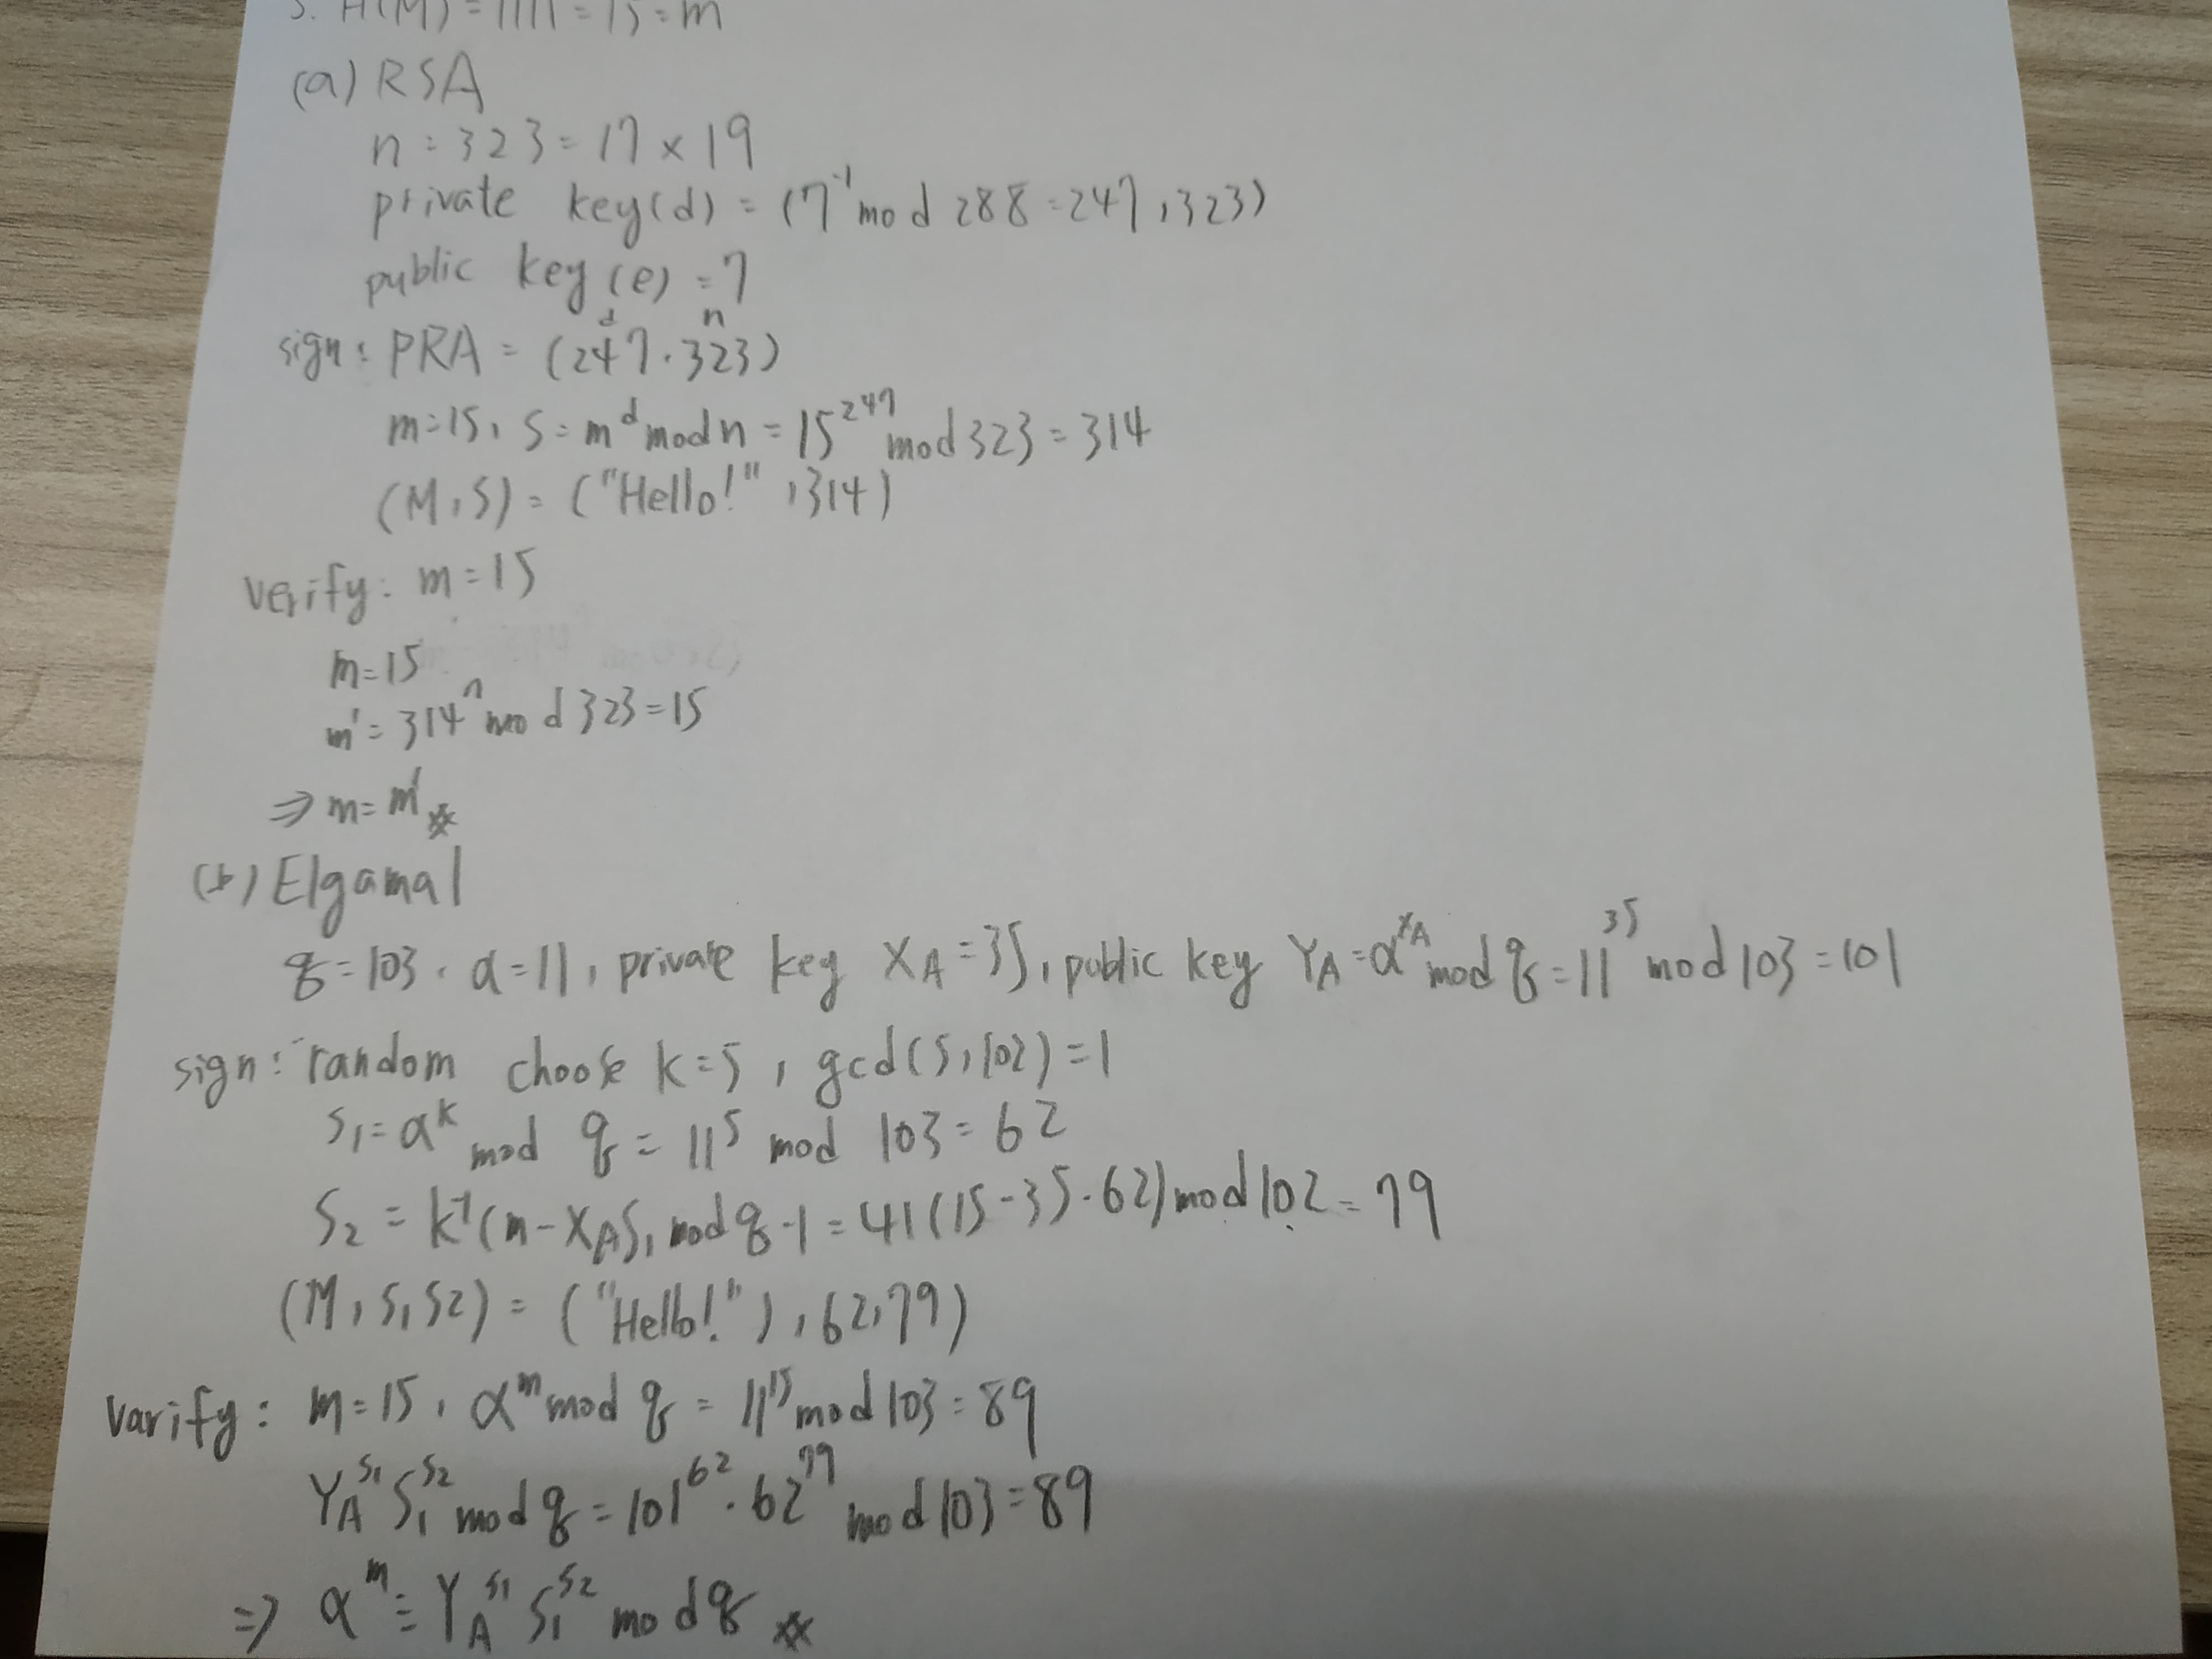 3. H(M) = 1111 = 15 = m
(a) RSA
n = 323 = 17 × 19
private key(d) = (7⁻¹ mod 288 = 247, 323)
public key (e) = 7
sign: PRA = (247, 323)
d n
m=15, S = m^d mod n = 15^247 mod 323 = 314
(M,S) = ("Hello!", 314)
verify: m = 15
m=15
m' = 314^n mod 323 = 15
⇒ m = m'
(b) Elgamal
q = 103, α = 11, private key XA = 35, public key YA = α^XA mod q = 11^35 mod 103 = 101
sign: random choose k = 5, gcd(5,102) = 1
S1 = α^k mod q = 11^5 mod 103 = 62
S2 = k⁻¹(m - XAS1 mod q-1 = 41(15-35·62) mod 102 = 79
(M, S1 S2) = ("Hello!"), 62, 79)
varify: m = 15, α^m mod q = 11^15 mod 103 = 89
YA^S1 S1^S2 mod q = 101^62 · 62^79 mod 103 = 89
⇒ α^m ≡ YA^S1 S1^S2 mod q